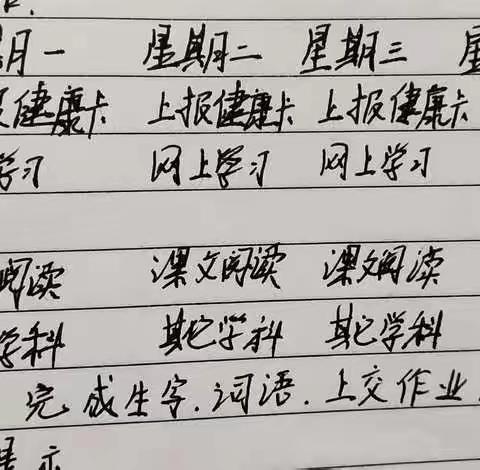 期一 星期二 星期三 星
报健康卡 上报健康卡 上报健康卡
学习 网上学习 网上学习
阅读 课文阅读 课文阅读
学科 其它学科 其它学科
完成生字.词语.上交作业.